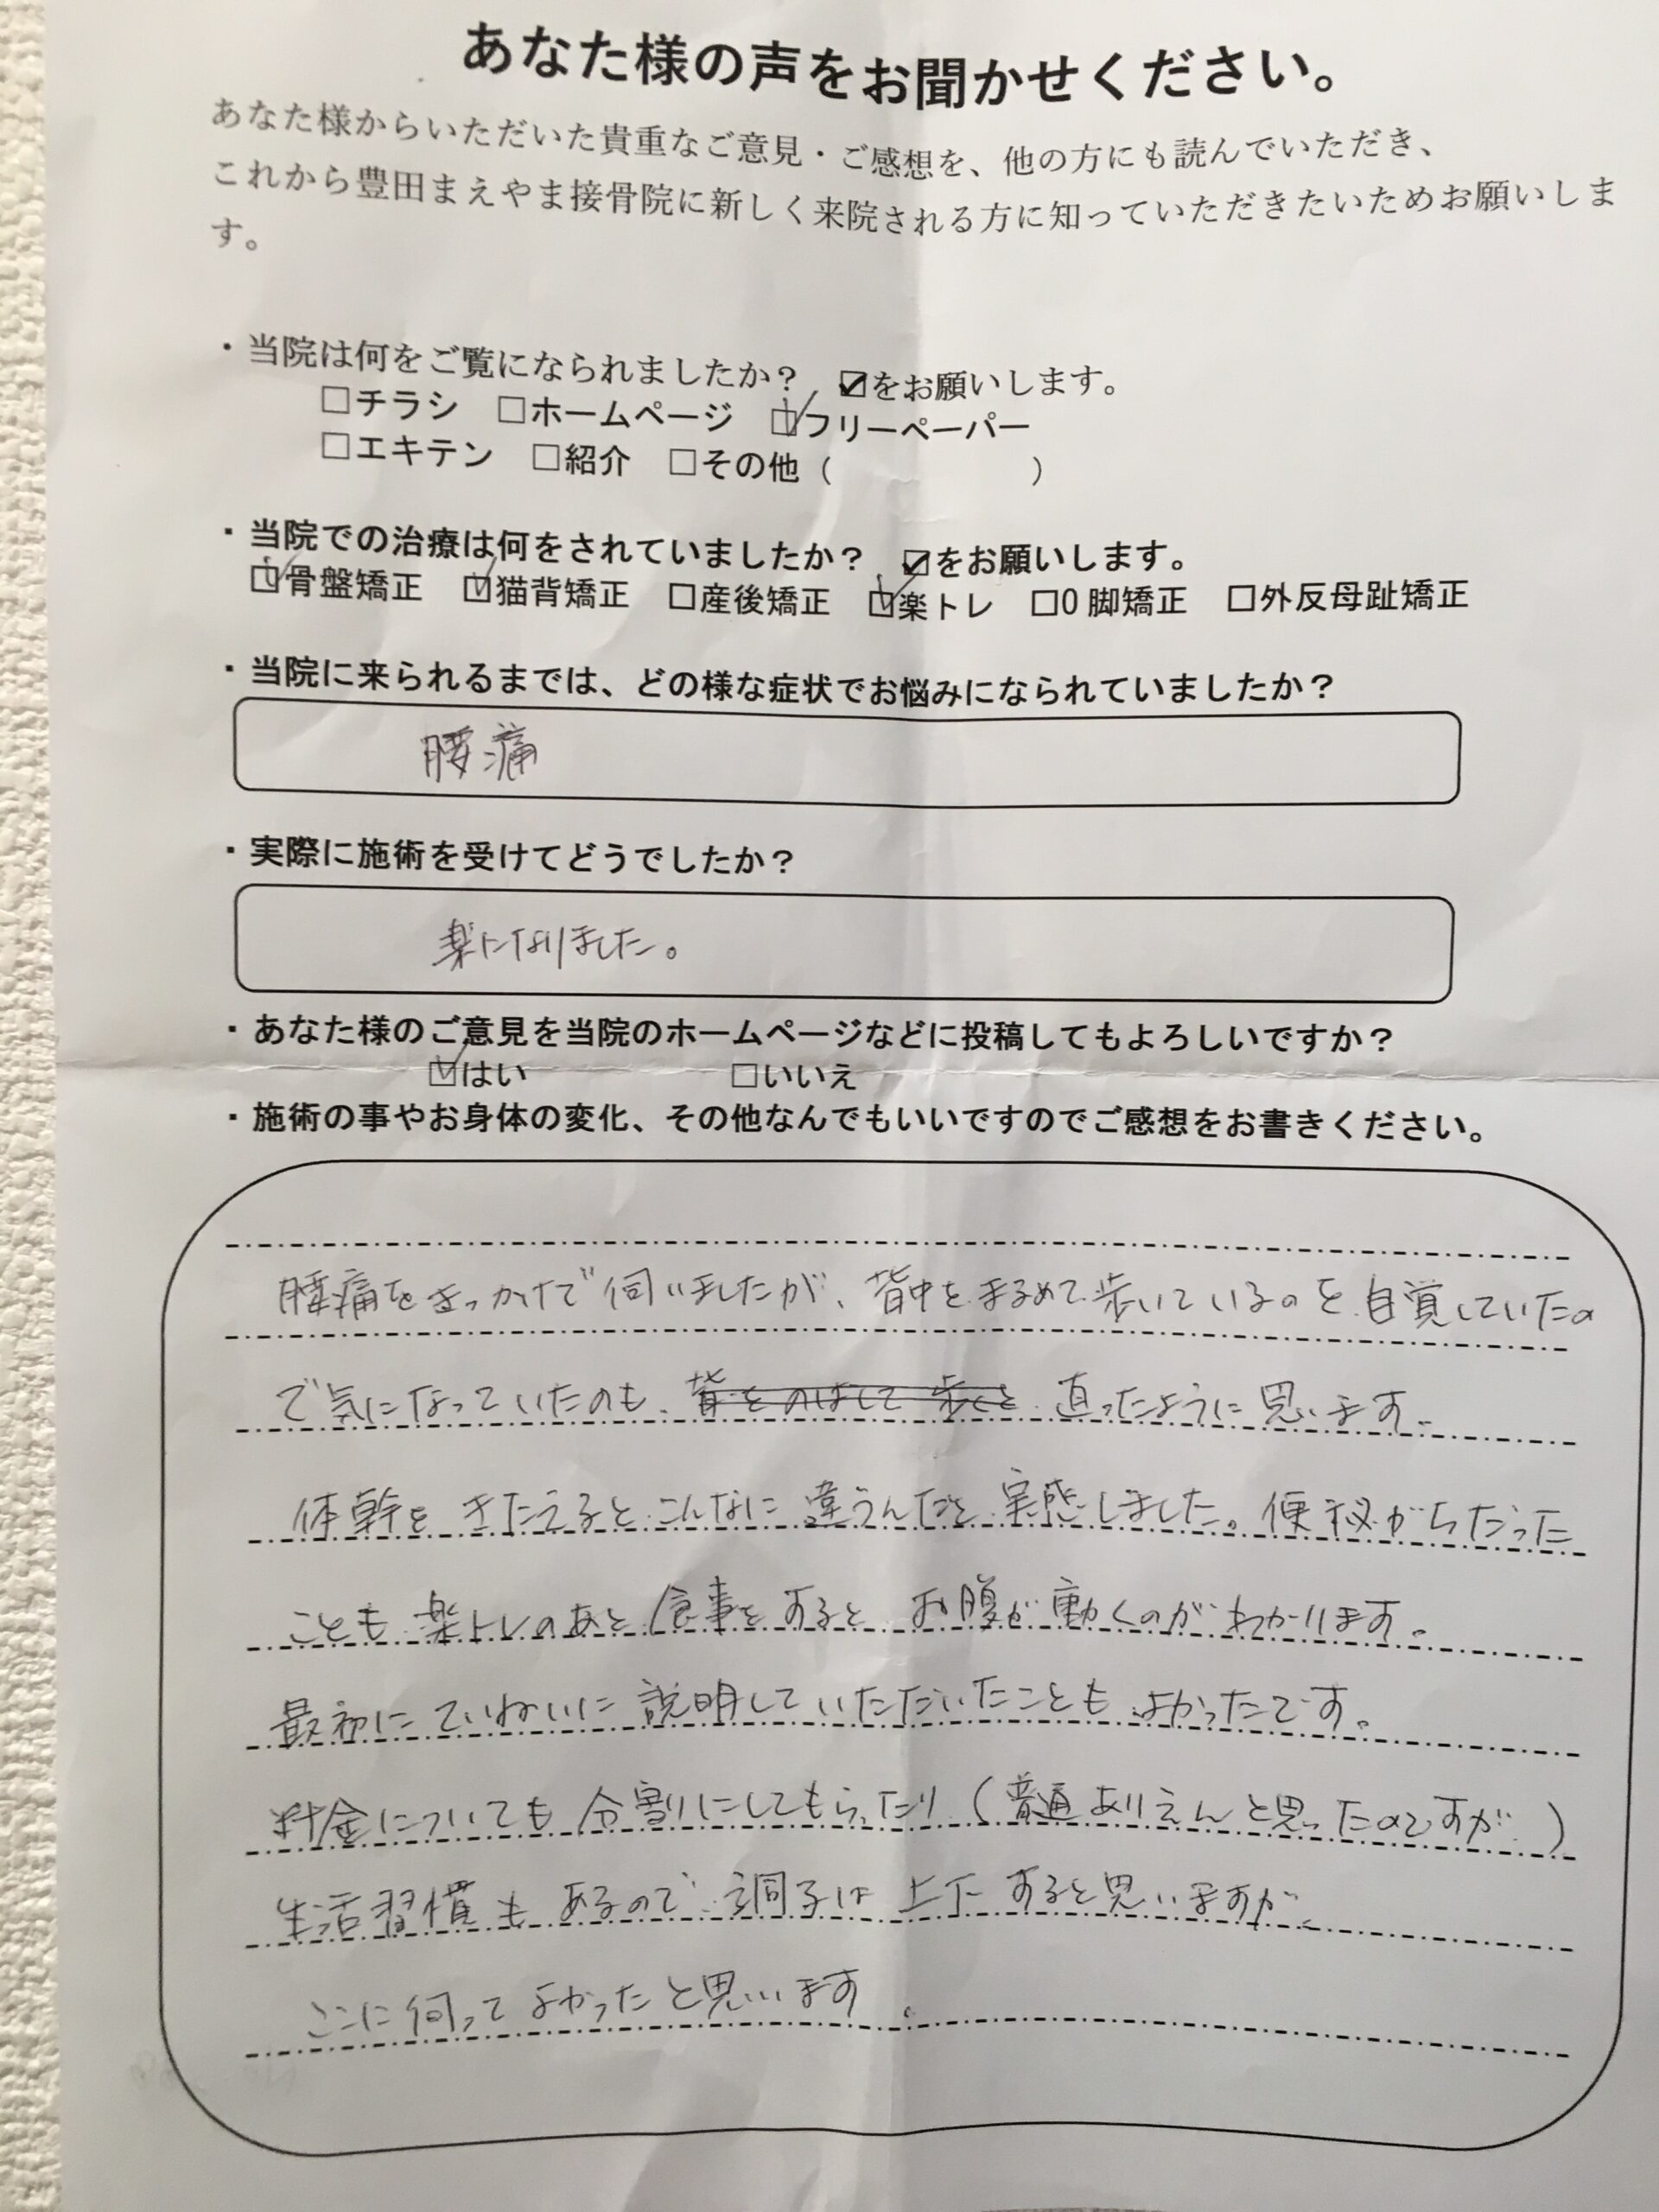 あなた様の声をお聞かせください。
あなた様からいただいた貴重なご意見・ご感想を、他の方にも読んでいただき、
これから豊田まえやま接骨院に新しく来院される方に知っていただきたいためお願いしま
す。
・当院は何をご覧になられましたか？ ☑をお願いします。
□チラシ □ホームページ ☑フリーペーパー
□エキテン □紹介 □その他（ ）
・当院での治療は何をされていましたか？ ☑をお願いします。
☑骨盤矯正 ☑猫背矯正 □産後矯正 ☑楽トレ □O脚矯正 □外反母趾矯正
・当院に来られるまでは、どの様な症状でお悩みになられていましたか？
腰痛
・実際に施術を受けてどうでしたか？
楽になりました。
・あなた様のご意見を当院のホームページなどに投稿してもよろしいですか？
☑はい □いいえ
・施術の事やお身体の変化、その他なんでもいいですのでご感想をお書きください。
腰痛をきっかけで伺いましたが、背中をまるめて歩いているのを自覚していたの
で気になっていたのも、背をのばして歩くと 直ったように思います。
体幹をきたえるとこんなに違うんだと実感しました。便秘がちだった
ことも楽トレのあと食事をするとお腹が動くのがわかります。
最初にていねいに説明していただいたこともよかったです。
料金についても分割りにしてもらったり（普通ありえんと思ったのですが）
生活習慣もあるので調子は上下すると思いますが、
ここに伺ってよかったと思います。